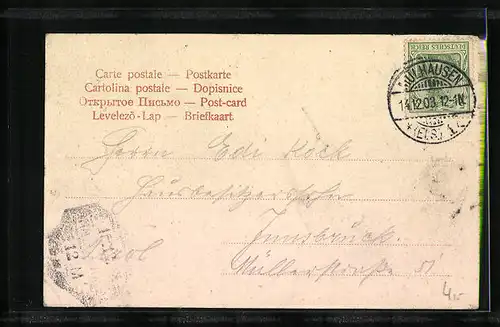 Carte postale — Postkarte
Cartolina postale — Dopisnice
Открытое Письмо — Post-card
Levelező-Lap — Briefkaart
DEUTSCHES REICH
MÜLHAUSEN
14.12.03. 12-1N.
(ELS.) 1
Herrn Edi Köck
Hausbesitzerssohn
Innsbruck.
Müllerstraße 51
Tirol
12 M
4.-